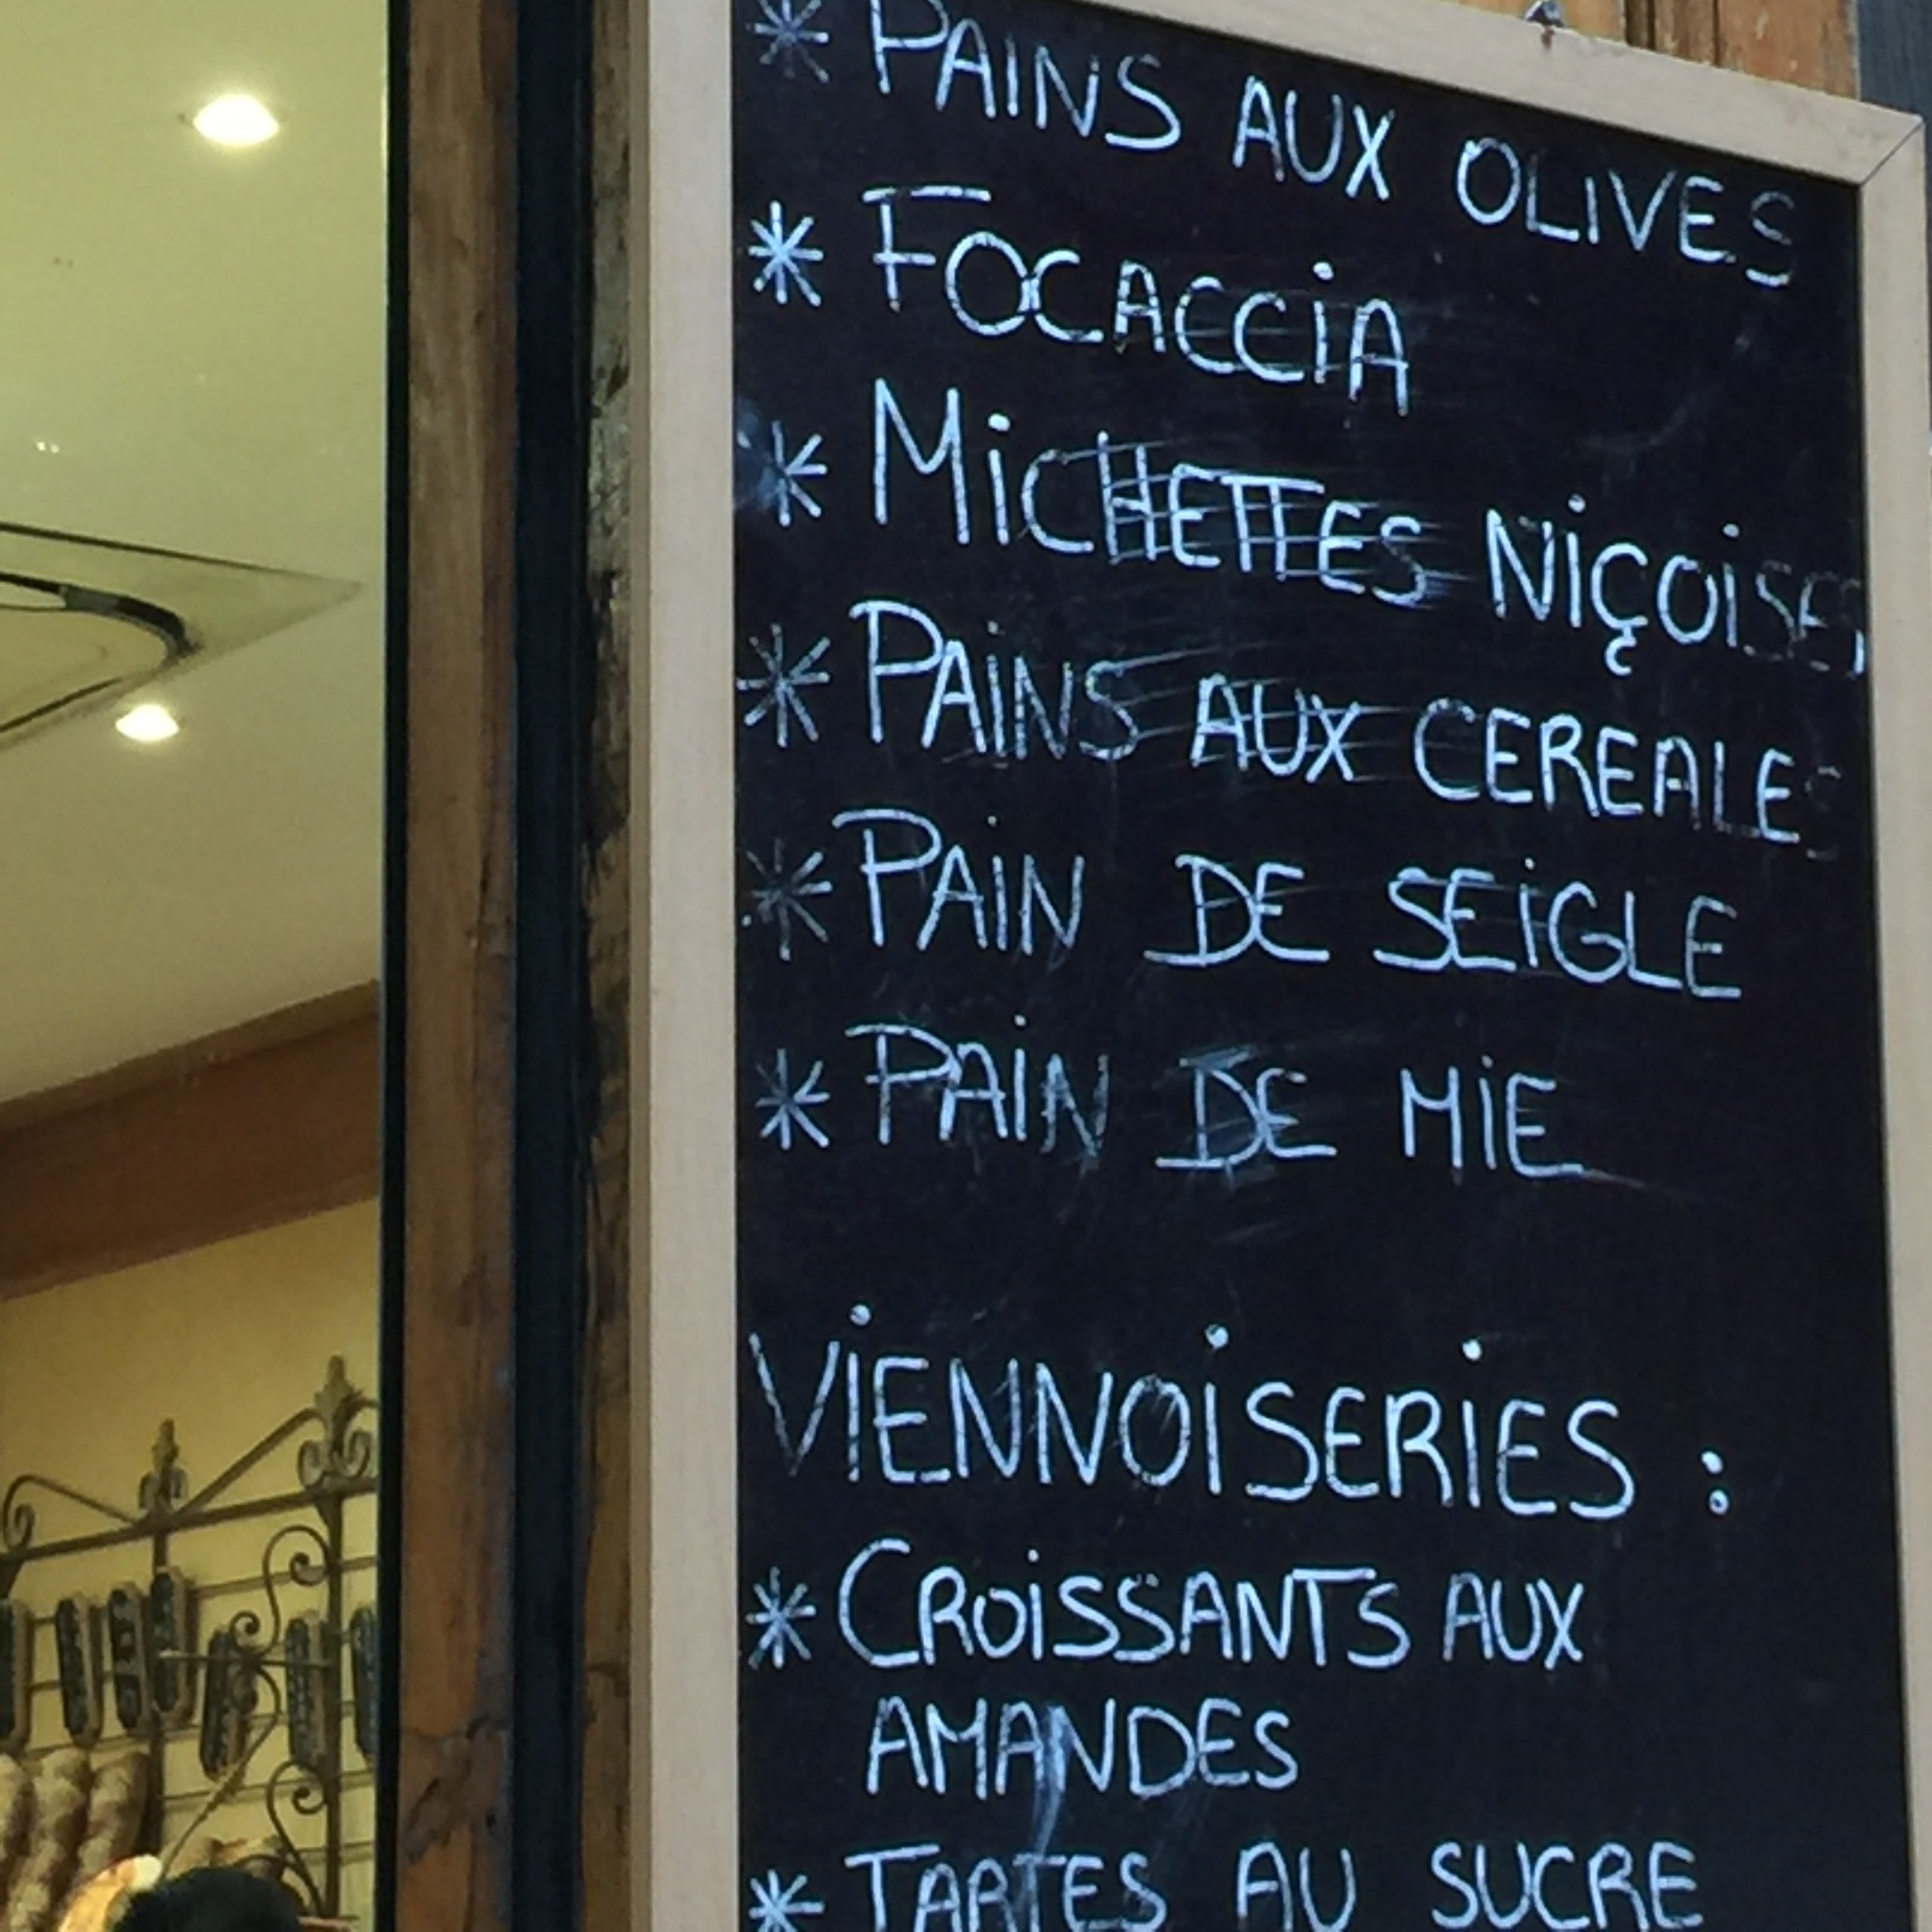 * PAINS AUX OLIVES
* FOCACCIA
* MICHETTES NIÇOISES
* PAINS AUX CEREALES
* PAIN DE SEIGLE
* PAIN DE MIE
VIENNOISERIES :
* CROISSANTS AUX
AMANDES
* TARTES AU SUCRE